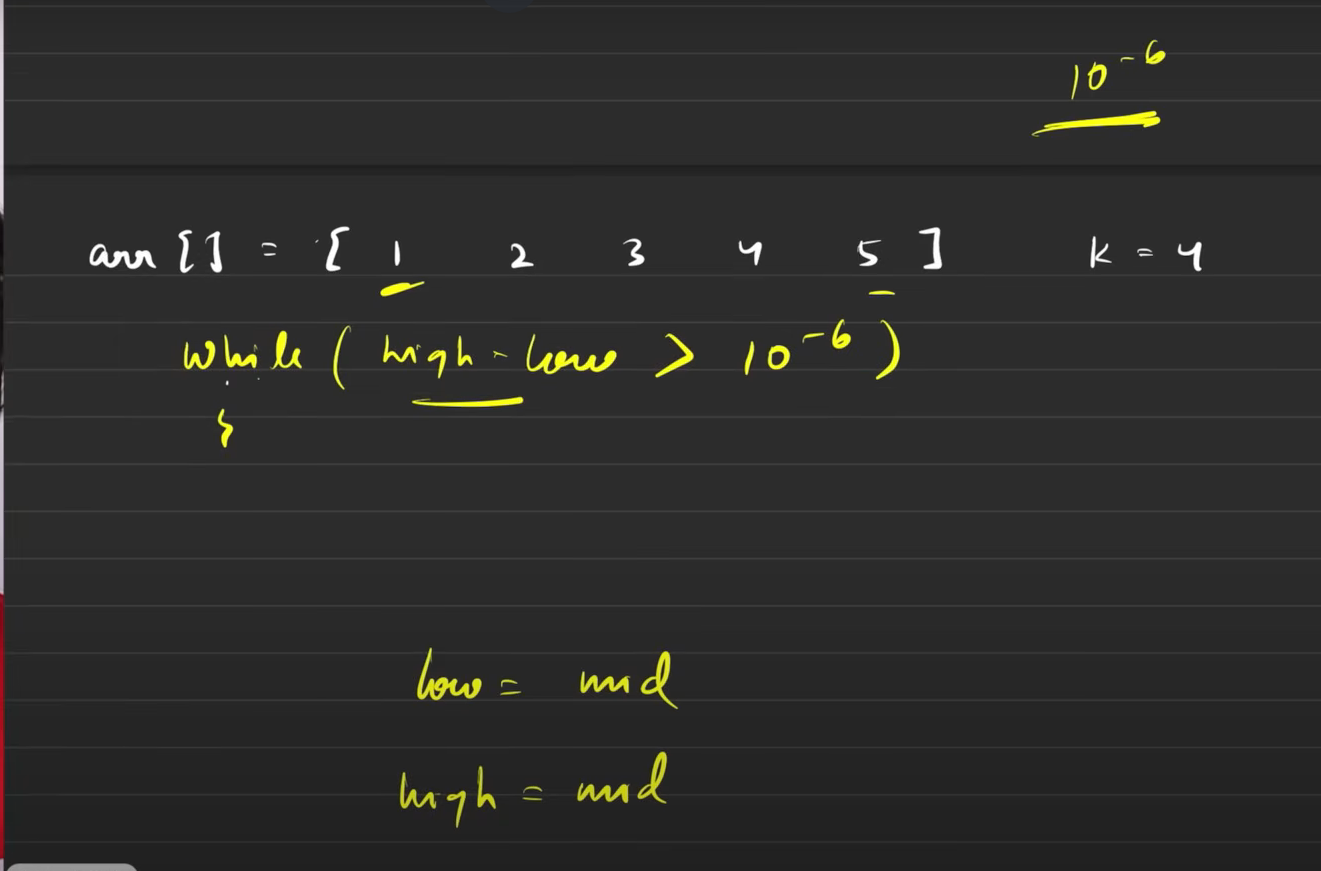 10⁻⁶
arr [] = [ 1 2 3 4 5 ] k = 4
while ( high - low > 10⁻⁶ )
{
low = mid
high = mid